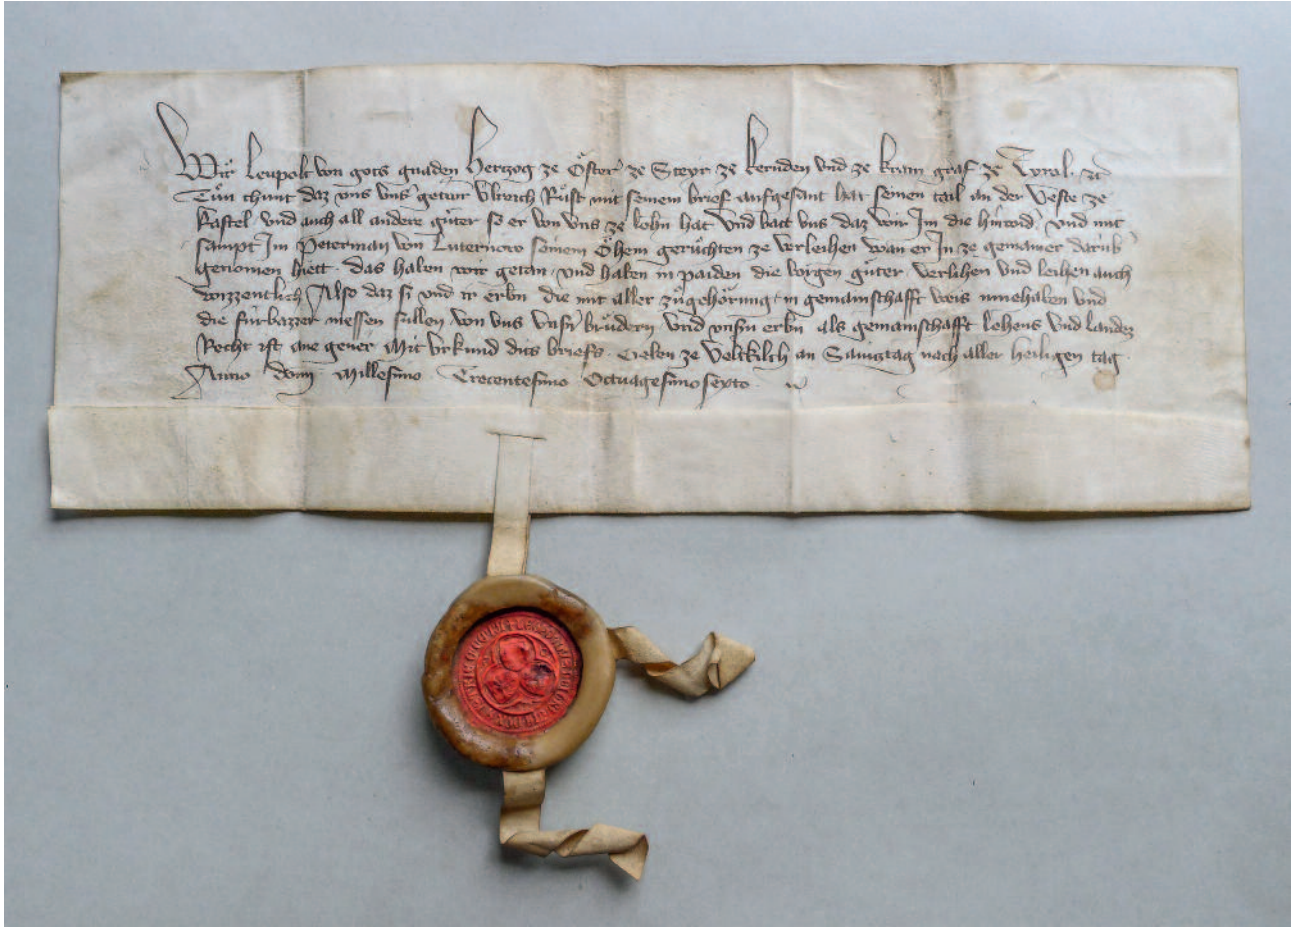 Wir Leupolt von gots gnaden Hertzog ze Öster ze Steyr ze kernden und ze krain graf ze Tyrol etc
Tůn chunt daz uns uns getrewr Ulreich Růst mit seinem brief aufgesant hat seinen tail an der Veste ze
kastel und auch all andere gůter so er von uns ze lehn hat und batt uns daz wir Im die hinwid und mit
sampt Im Peterman von Luternow seinem Öhem gerůchten ze verleihen wan er In ze gemainer darub
genomen hiett das haben wir getan und haben in paiden die vorgen gůter verlihen und leihen auch
wizzentlich Also daz si und ir erbn die mit aller zůgehörung in gemainschafft weis innehaben und
die fůrbazzer niessen sullen von uns unsrn brůdern und unsrn erbn als gemainschafft lehens und landes
Recht ist ane gever Mit urkund dits briefs Geben ze Veltkilch an Samstag nach aller heiligen tag
Anno domi Millesimo Trecentesimo Octuagesimo sexto